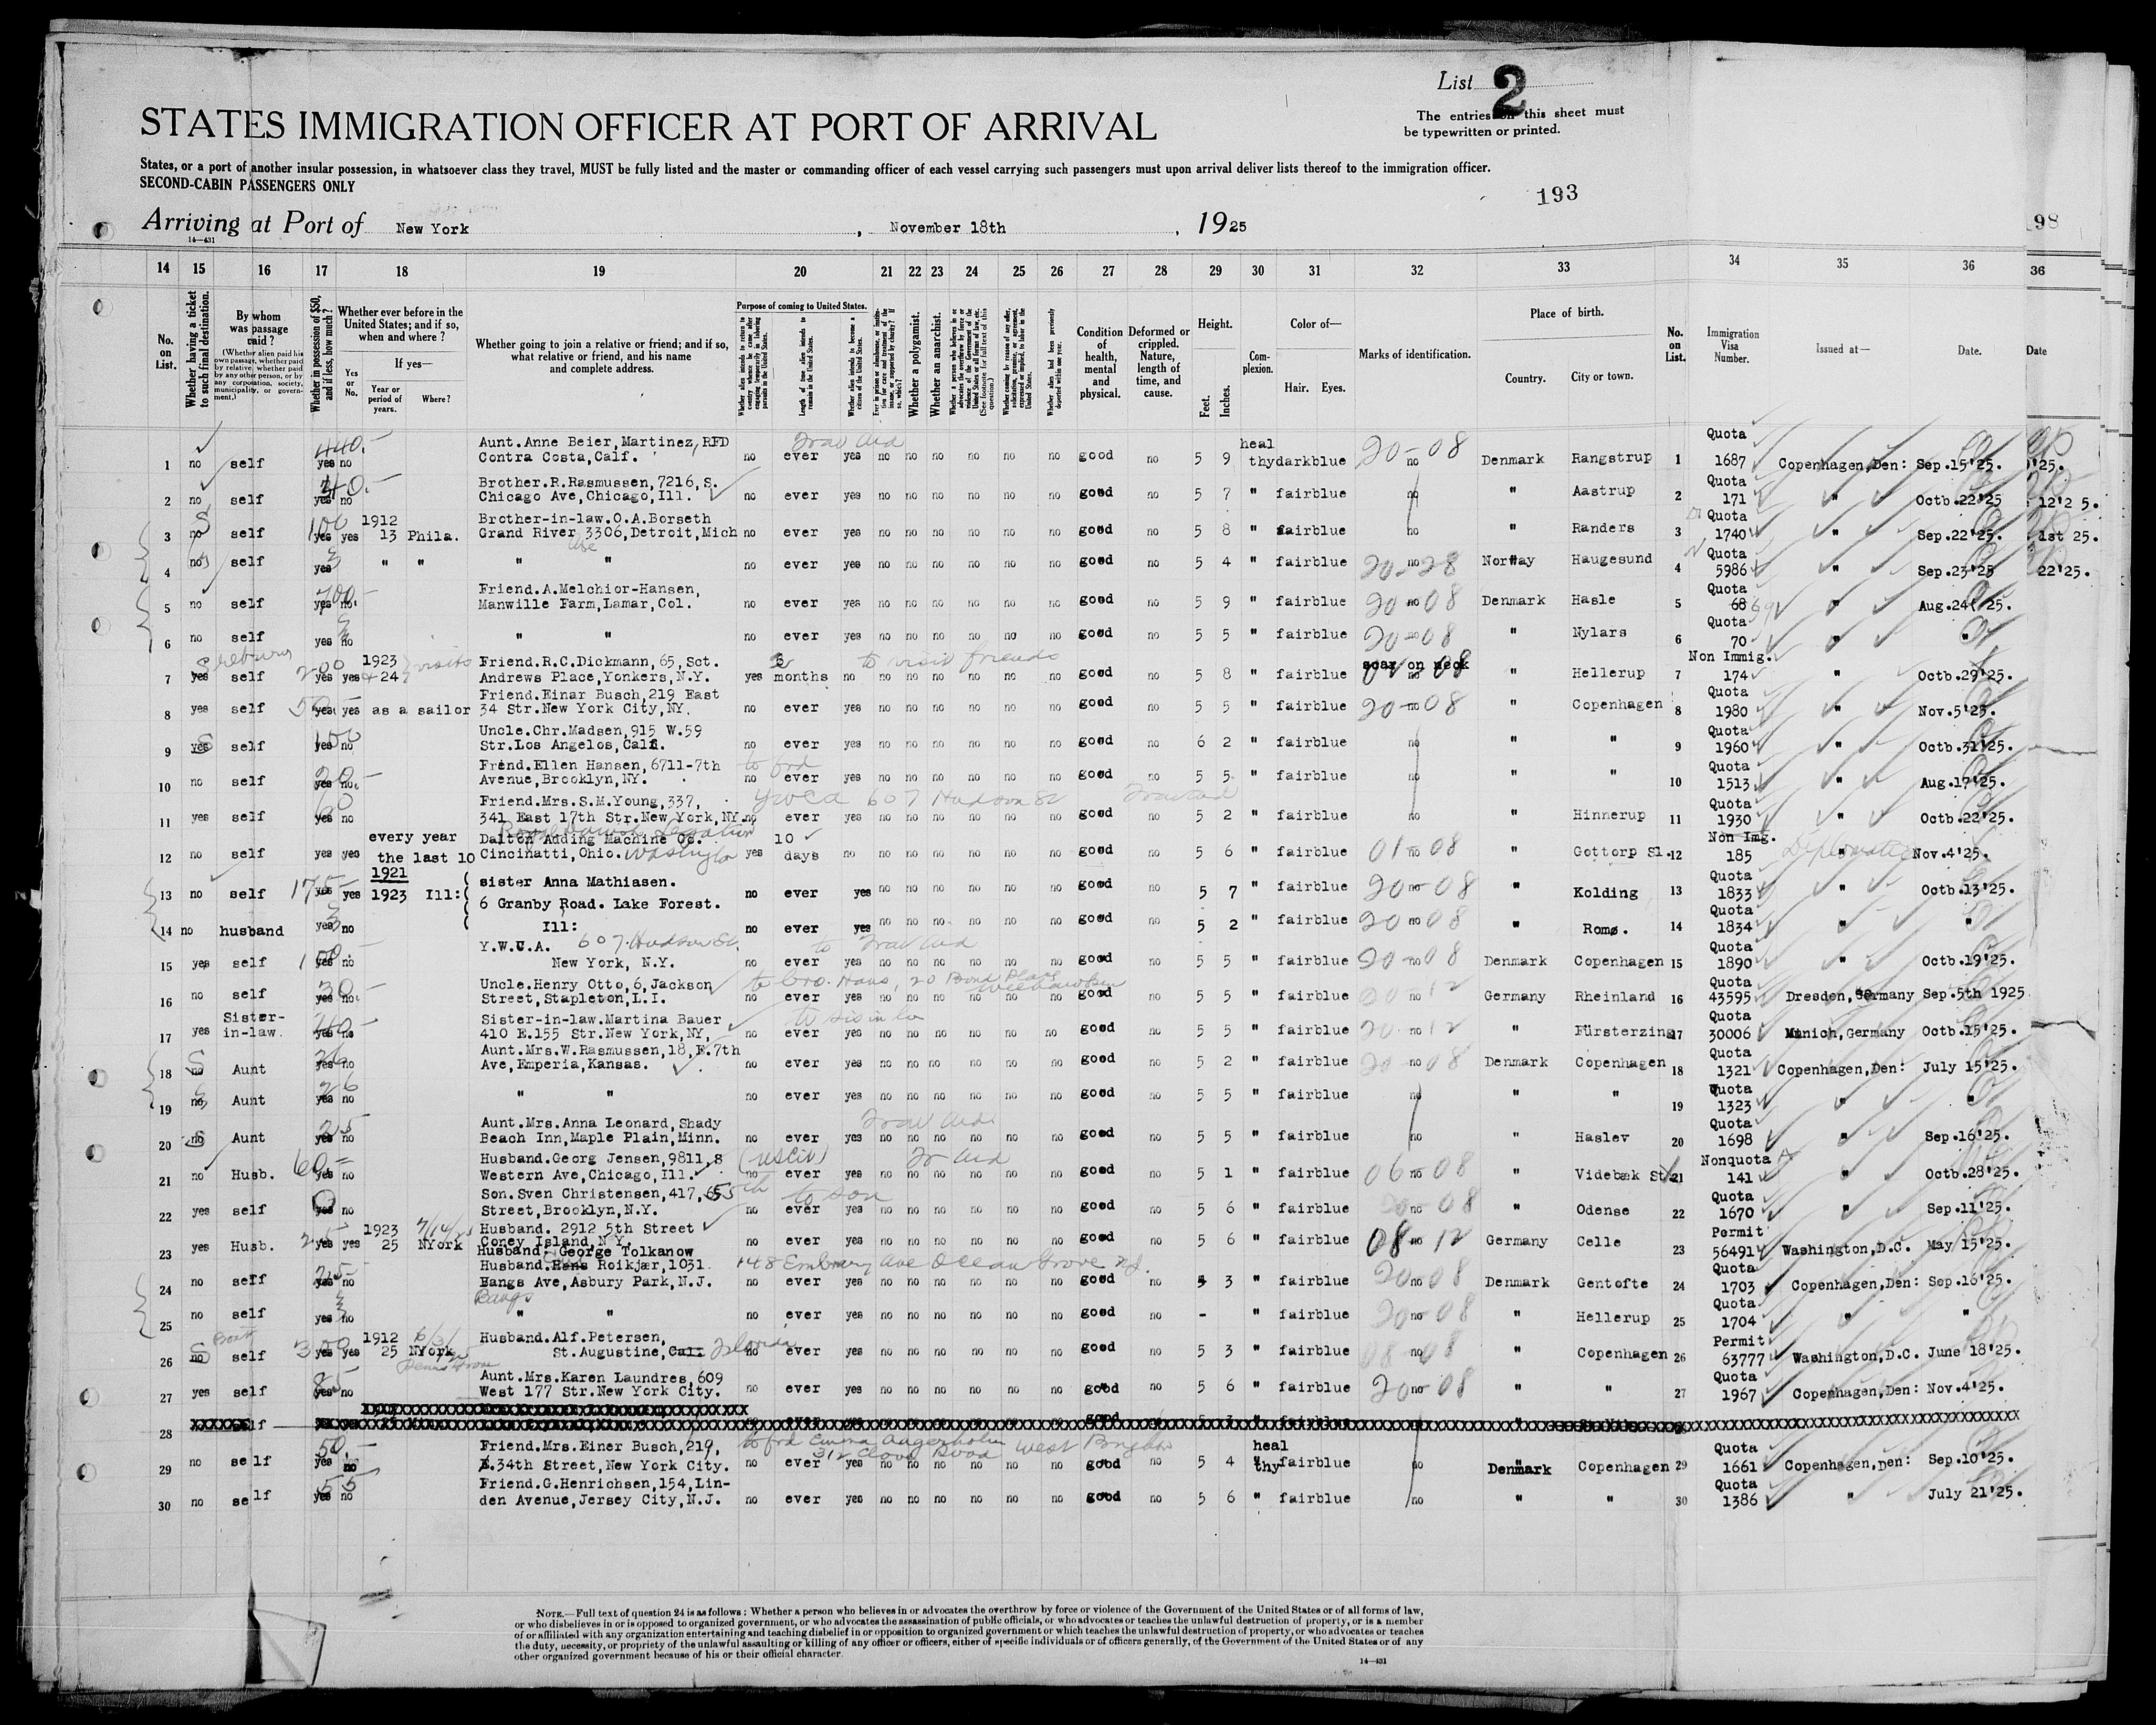 List 2
The entries on this sheet must
be typewritten or printed.
STATES IMMIGRATION OFFICER AT PORT OF ARRIVAL
States, or a port of another insular possession, in whatsoever class they travel, MUST be fully listed and the master or commanding officer of each vessel carrying such passengers must upon arrival deliver lists thereof to the immigration officer.
SECOND-CABIN PASSENGERS ONLY
193
Arriving at Port of New York, November 18th, 1925
98
14—431
14 15 16 17 18 19 20 21 22 23 24 25 26 27 28 29 30 31 32 33 34 35 36 36
No. on List.
Whether having a ticket to such final destination.
By whom was passage paid?
(Whether alien paid his own passage, whether paid by relative, whether paid by any other person, or by any corporation, society, municipality, or government.)
Whether in possession of $50, and if less, how much?
Whether ever before in the United States; and if so, when and where?
If yes—
Yes or No.
Year or period of years.
Where?
Whether going to join a relative or friend; and if so, what relative or friend, and his name and complete address.
Purpose of coming to United States.
Whether alien intends to return to country whence he came after engaging temporarily in laboring pursuits in the United States.
Length of time alien intends to remain in the United States.
Whether alien intends to become a citizen of the United States.
Whether a polygamist.
Whether an anarchist.
Condition of health, mental and physical.
Deformed or crippled. Nature, length of time, and cause.
Height.
Feet. Inches.
Complexion.
Color of—
Hair. Eyes.
Marks of identification.
Place of birth.
Country. City or town.
No. on List.
Immigration Visa Number.
Issued at—
Date.
Date
1 no self 440.- yes no Aunt.Anne Beier,Martinez,RFD Contra Costa,Calf. Trav Aid no ever yes no no no no no no good no 5 9 healthy dark blue 20-08 no Denmark Rangstrup 1 Quota 1687 Copenhagen,Den: Sep.15'25.
2 no self 40.- yes no Brother.R.Rasmussen,7216,S. Chicago Ave,Chicago,Ill. no ever yes no no no no no no good no 5 7 " fair blue no " Aastrup 2 Quota 171 " Octb.22'25
3 no self 100 yes yes 1912 13 Phila. Brother-in-law.O.A.Borseth Grand River 3306,Detroit,Mich Ave no ever yes no no no no no no good no 5 8 " fair blue no " Randers 3 Quota 1740 " Sep.22'25.
4 no self yes " " " " no ever yes no no no no no no good no 5 4 " fair blue 20-28 no Norway Haugesund 4 Quota 5986 " Sep.23'25
5 no self 700- yes no Friend.A.Melchior-Hansen, Manwille Farm,Lamar,Col. no ever yes no no no no no no good no 5 9 " fair blue 20 no 08 Denmark Hasle 5 Quota 68 69 " Aug.24'25.
6 no self yes no " " no ever yes no no no no no no good no 5 5 " fair blue 20-no-08 " Nylars 6 Quota 70 " "
7 yes self 200 yes yes 1923 + 24 visits Friend.R.C.Dickmann,65,Sct. Andrews Place,Yonkers,N.Y. yes months no to visit friends no no no no no no good no 5 8 " fair blue scar on neck 08 " Hellerup 7 Non Immig. 174 " Octb.29'25.
8 yes self 50 yes yes as a sailor Friend.Einar Busch,219 East 34 Str.New York City,NY. no ever yes no no no no no no good no 5 5 " fair blue 20-no-08 " Copenhagen 8 Quota 1980 " Nov.5'25.
9 yes self 100 yes no Uncle.Chr.Madsen,915 W.59 Str.Los Angelos,Calf. no ever yes no no no no no no good no 6 2 " fair blue no " " 9 Quota 1960 " Octb.31'25.
10 no self 20- yes no. Frend.Ellen Hansen,6711-7th Avenue,Brooklyn,NY. to frd no ever yes no no no no no no good no 5 5 " fair blue no " " 10 Quota 1513 " Aug.17'25.
11 yes self 60 yes no Friend.Mrs.S.M.Young,337, 341 East 17th Str.New York,NY. YWCA 607 Hudson St Trav Aid no ever yes no no no no no no good no 5 2 " fair blue no " Hinnerup 11 Quota 1930 " Octb.22'25.
12 no self yes yes every year the last 10 Royal Danish Legation Washington Dalton Adding Machine Co. Cincinatti,Ohio. yes 10 days no no no no no no no good no 5 6 " fair blue 01 no 08 " Gottorp Sl. 12 Non Img. 185 Diplomatic " Nov.4'25.
13 no self 175- yes yes 1921 1923 Ill: sister Anna Mathiasen. 6 Granby Road. Lake Forest. no ever yes no no no no no no good no 5 7 " fair blue 20 no 08 " Kolding 13 Quota 1833 " Octb.13'25.
14 no husband yes no Ill: no ever yes no no no no no no good no 5 2 " fair blue 20 no 08 " Romø. 14 Quota 1834 " "
15 yes self yes no Y.W.C.A. 607 Hudson St. New York, N.Y. to Trav Aid no ever yes no no no no no no good no 5 5 " fair blue 20 no 08 Denmark Copenhagen 15 Quota 1890 " Octb.19'25.
16 no self 30- yes no. Uncle.Henry Otto,6,Jackson Street,Stapleton,L.I. to bro. Hans, 20 Bond Place Weehawken no ever yes no no no no no no good no 5 5 " fair blue 20 no 12 Germany Rheinland 16 Quota 43595 Dresden,Germany Sep.5th 1925
17 yes Sister-in-law. yes no Sister-in-law.Martina Bauer 410 E.155 Str.New York,NY, to sis in la no ever yes no no no no no no good no 5 5 " fair blue 20 no 12 " Fürsterzing 17 Quota 30006 Munich,Germany Octb.15'25.
18 no Aunt 26 yes no Aunt.Mrs.W.Rasmussen,18,E.7th Ave,Emperia,Kansas. no ever yes no no no no no no good no 5 2 " fair blue 20 no 08 Denmark Copenhagen 18 Quota 1321 Copenhagen,Den: July 15'25.
19 no Aunt 26 yes no " " no ever yes no no no no no no good no 5 5 " fair blue no " " 19 Quota 1323 " "
20 no Aunt 25 yes no Aunt.Mrs.Anna Leonard,Shady Beach Inn,Maple Plain,Minn. Trav Aid no ever yes no no no no no no good no 5 5 " fair blue no " Haslev 20 Quota 1698 " Sep.16'25.
21 no Husb. 60- yes no Husband.Georg Jensen,9811,S Western Ave,Chicago,Ill. (uscit) Tr Aid no ever yes no no no no no no good no 5 1 " fair blue 06 no 08 " Videbæk St. 21 Nonquota 141 " Octb.28'25.
22 yes self 0 yes no Son.Sven Christensen,417, 55th Street,Brooklyn,N.Y. to son no ever yes no no no no no no good no 5 6 " fair blue 20 no 08 " Odense 22 Quota 1670 " Sep.11'25.
23 yes Husb. 25 yes yes 1923 25 7/14/25 NYork Husband. 2912 5th Street Coney Island,N.Y. Husband: George Tolkanow no ever yes no no no no no no good no 5 6 " fair blue 08 no 12 Germany Celle 23 Permit 56491 Washington,D.C. May 15'25.
24 no self 25- yes no Husband.Hans Roikjær,1031 Bangs Ave,Asbury Park,N.J. Bangs 148 Embury Ave Ocean Grove N.J. no ever yes no no no no no no good no 3 " fair blue 20 no 08 Denmark Gentofte 24 Quota 1703 Copenhagen,Den: Sep.16'25.
25 no self yes no " " no ever yes no no no no no no good no - " fair blue 20 no 08 " Hellerup 25 Quota 1704 " "
26 no self 300 yes yes 1912 25 NYork Husband.Alf.Petersen, St.Augustine,Calf Florida no ever yes no no no no no no good no 5 3 " fair blue 08 no 08 " Copenhagen 26 Permit 63777 Washington,D.C. June 18'25.
27 yes self 85 yes no Aunt.Mrs.Karen Laundres,609 West 177 Str.New York City. no ever yes no no no no no no good no 5 6 " fair blue 20 no 08 " " 27 Quota 1967 Copenhagen,Den: Nov.4'25.
28
29 no self 50.- yes no Friend.Mrs.Einer Busch,219, E.34th Street,New York City. to frd Emma no ever yes no no no no no no good no 5 4 healthy fair blue no Denmark Copenhagen 29 Quota 1661 Copenhagen,Den: Sep.10'25.
30 no self 55 yes no Friend.G.Henrichsen,154,Linden Avenue,Jersey City,N.J. no ever yes no no no no no no good no 5 6 " fair blue no " " 30 Quota 1386 " July 21'25.
NOTE.—Full text of question 24 is as follows: Whether a person who believes in or advocates the overthrow by force or violence of the Government of the United States or of all forms of law,
or who disbelieves in or is opposed to organized government, or who advocates the assassination of public officials, or who advocates or teaches the unlawful destruction of property, or is a member
of or affiliated with any organization entertaining and teaching disbelief in or opposition to organized government or which teaches the unlawful destruction of property, or who advocates or teaches
the duty, necessity, or propriety of the unlawful assaulting or killing of any officer or officers, either of specific individuals or of officers generally, of the Government of the United States or of any
other organized government because of his or their official character.
14—431